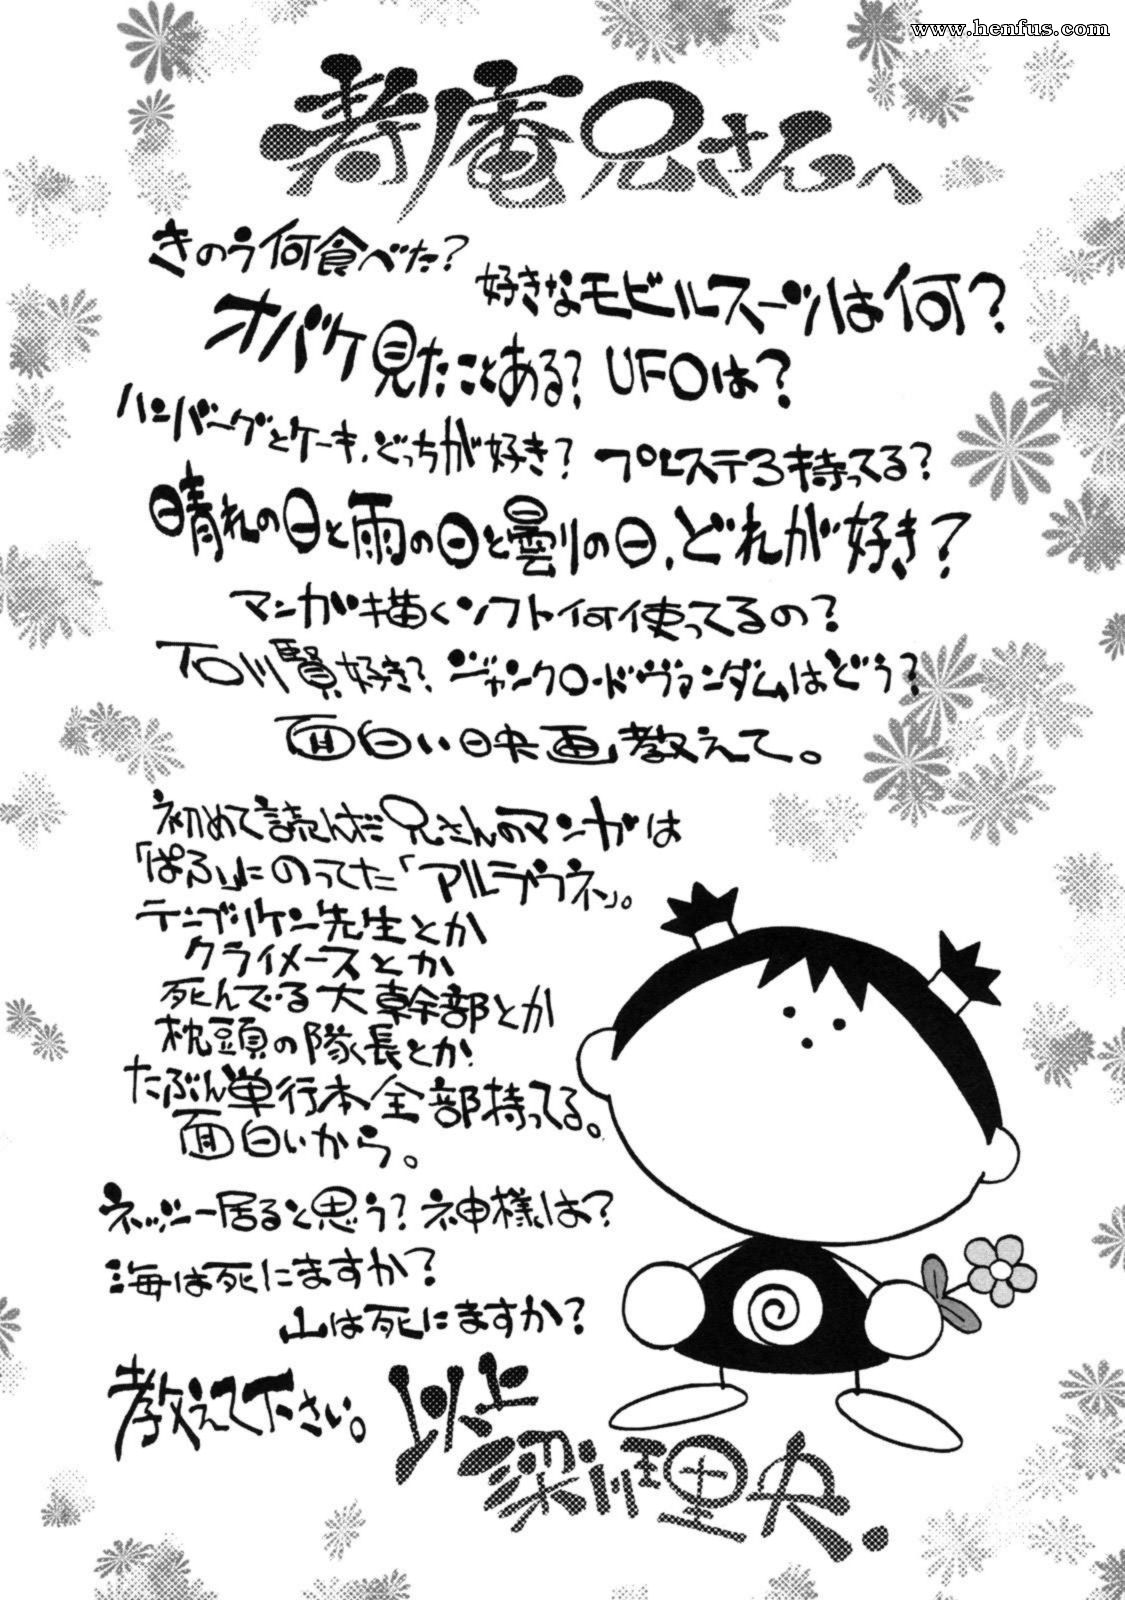 www.henfus.com
寿庵兄さんへ
きのう何食べた?
好きなモビルスーツは何?
オバケ見たことある? UFOは?
ハンバーグとケーキ、どっちが好き? プレステ3持ってる?
晴れの日と雨の日と曇りの日、どれが好き?
マンガ描くソフト何使ってるの?
石川賢好き? ジャンクロードヴァンダムはどう?
面白い映画教えて。
初めて読んだ兄さんのマンガは
「ぱふ」にのってた「アルラウネ」。
テンプリケン先生とか
クライメースとか
死んでる大幹部とか
枕頭の隊長とか
たぶん単行本全部持ってる。
面白いから。
ネッシー居ると思う? 神様は?
海は死にますか?
山は死にますか?
教えて下さい。
以上
梁川理央.